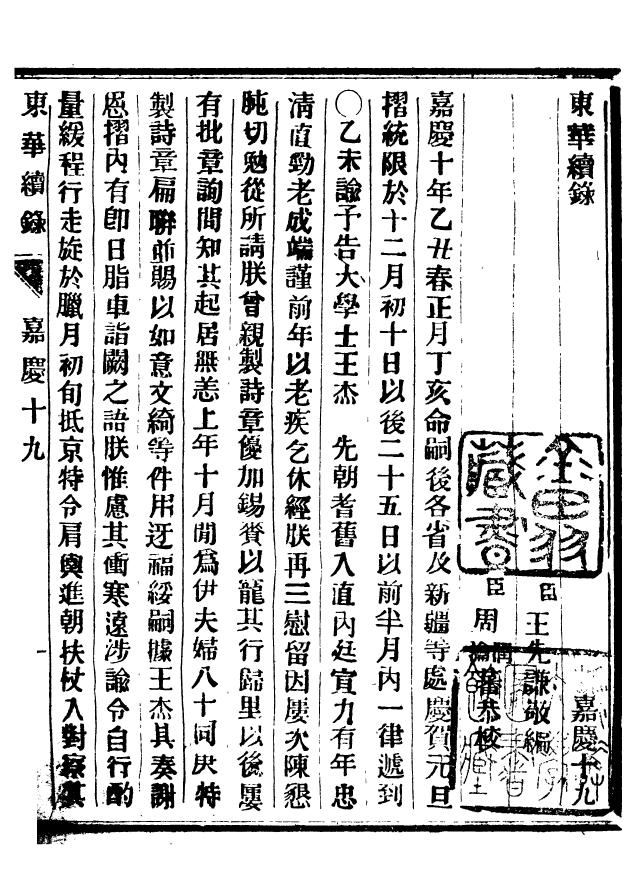 東華續錄
嘉慶十九
臣王先謙敬編
臣周瀹蕃恭校
嘉慶十年乙丑春正月丁亥命嗣後各省及新疆等處慶賀元旦
摺統限於十二月初十日以後二十五日以前半月內一律遞到
〇乙未諭予告大學士王杰 先朝耆舊入直內廷宣力有年忠
淸直勁老成端謹前年以老疾乞休經朕再三慰留因屢次陳懇
肫切勉從所請朕曾親製詩章優加錫賚以寵其行歸里以後屢
有批章詢問知其起居無恙上年十月閒爲伊夫婦八十同庚特
製詩章扁聯並賜以如意文綺等件用迓福綏嗣據王杰具奏謝
恩摺內有卽日脂車詣闕之語朕惟慮其衝寒遠涉諭令自行酌
量緩程行走旋於臘月初旬抵京特令肩輿進朝扶杖入對察其
東華續錄 嘉慶十九